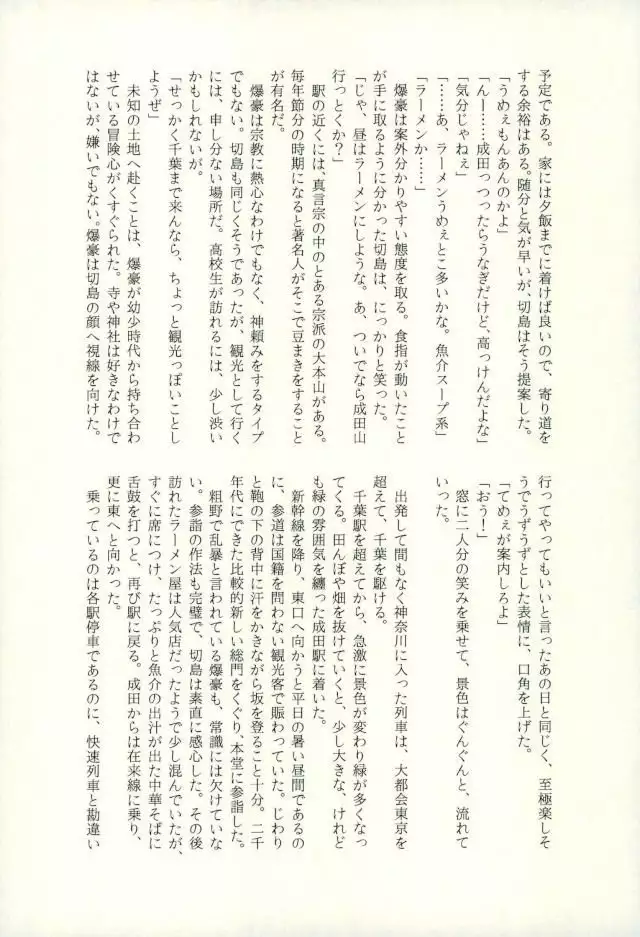 予定である。家には夕飯までに着けば良いので、寄り道を
する余裕はある。随分と気が早いが、切島はそう提案した。
「うめぇもんあんのかよ」
「んー……成田っつったらうなぎだけど、高っけんだよな」
「気分じゃねぇ」
「……あ、ラーメンうめぇとこ多いかな。魚介スープ系」
「ラーメンか……」
爆豪は案外分かりやすい態度を取る。食指が動いたこと
が手に取るように分かった切島は、にっかりと笑った。
「じゃ、昼はラーメンにしような。あ、ついでなら成田山
行っとくか？」
駅の近くには、真言宗の中のとある宗派の大本山がある。
毎年節分の時期になると著名人がそこで豆まきをすること
が有名だ。
爆豪は宗教に熱心なわけでもなく、神頼みをするタイプ
でもない。切島も同じくそうであったが、観光として行く
には、申し分ない場所だ。高校生が訪れるには、少し渋い
かもしれないが。
「せっかく千葉まで来んなら、ちょっと観光っぽいことし
ようぜ」
未知の土地へ赴くことは、爆豪が幼少時代から持ち合わ
せている冒険心がくすぐられた。寺や神社は好きなわけで
はないが、嫌いでもない。爆豪は切島の顔へ視線を向けた。
行ってやってもいいと言ったあの日と同じく、至極楽しそ
うでうずうずとした表情に、口角を上げた。
「てめぇが案内しろよ」
「おう！」
窓に二人分の笑みを乗せて、景色はぐんぐんと、流れて
いった。
出発して間もなく神奈川に入った列車は、大都会東京を
超えて、千葉を駆ける。
千葉駅を超えてから、急激に景色が変わり緑が多くなっ
てくる。田んぼや畑を抜けていくと、少し大きな、けれど
も緑の雰囲気を纏った成田駅に着いた。
新幹線を降り、東口へ向かうと平日の暑い昼間であるの
に、参道は国籍を問わない観光客で賑わっていた。じわり
と鞄の下の背中に汗をかきながら坂を登ること十分。二千
年代にできた比較的新しい総門をくぐり、本堂に参詣した。
粗野で乱暴と言われている爆豪も、常識には欠けていな
い。参詣の作法も完璧で、切島は素直に感心した。その後
訪れたラーメン屋は人気店だったようで少し混んでいたが、
すぐに席につけ、たっぷりと魚介の出汁が出た中華そばに
舌鼓を打つと、再び駅に戻る。成田からは在来線に乗り、
更に東へと向かった。
乗っているのは各駅停車であるのに、快速列車と勘違い